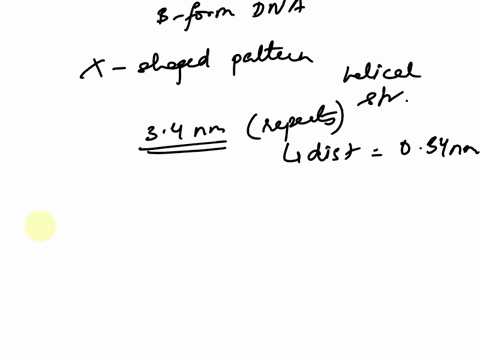 B-form DNA
X-shaped pattern
helical
str.
3.4 nm (repeats)
↳ dist = 0.34nm